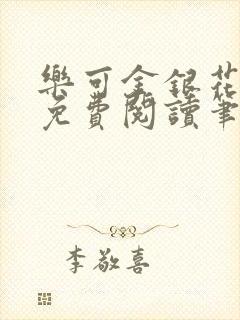 樂可金銀花
免費閱讀筆
李敬喜